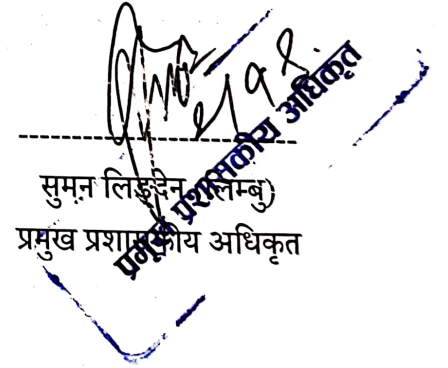 सुमन लिङ्देन (लिम्बु)
प्रमुख प्रशासकीय अधिकृत
प्रमुख प्रशासकीय अधिकृत